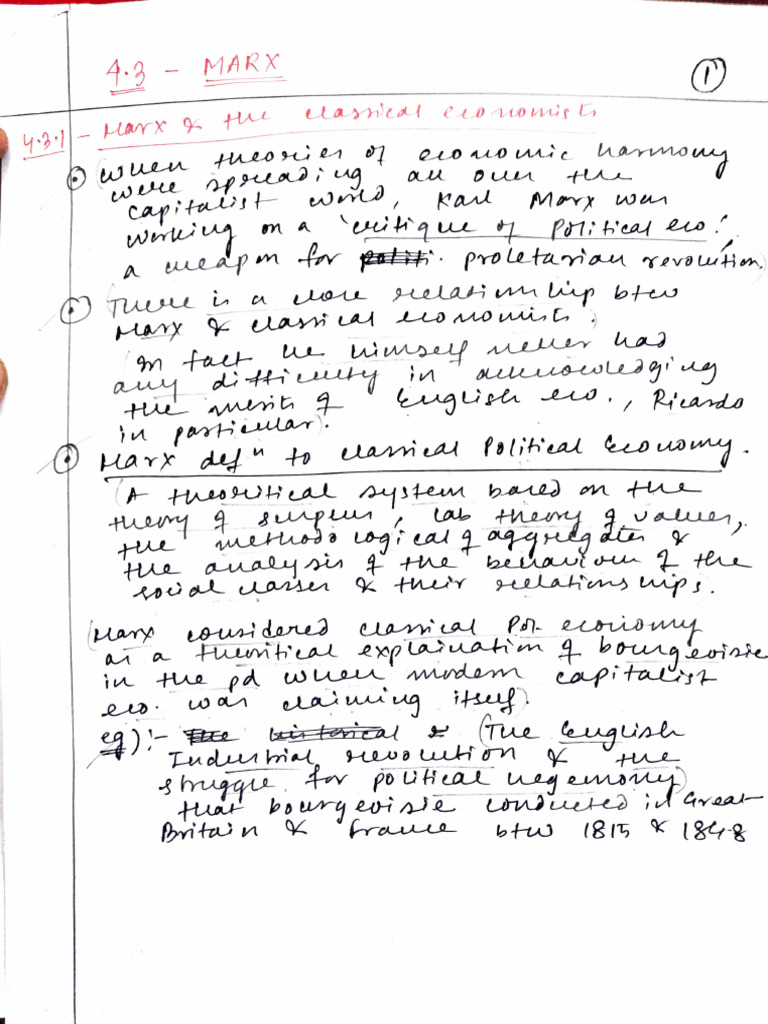 4.3 - MARX
1
4.3.1 - Marx & the classical economists
When theories of economic harmony
were spreading all over the
capitalist world, Karl Marx was
working on a 'critique of Political eco.'
a weapon for proletarian revolution.)
(There is a close relationship btw
Marx & classical economists.
In fact he himself never had
any difficulty in acknowledging
the merits of English eco., Ricardo
in particular).
Marx defn to classical Political Economy.
(A theoritical system based on the
theory of surplus, lab theory of values,
the methodological of aggregates &
the analysis of the behaviour of the
social classes & their relationships.
(Marx considered classical Pol- economy
as a theoritical explaination of bourgeoisie
in the pd when modern capitalist
eco. was claiming itself).
eg) :- The historical & (The English
Industrial revolution & the
struggle for political hegemony)
that bourgeoisie conducted in Great
Britain & France btw 1815 & 1848